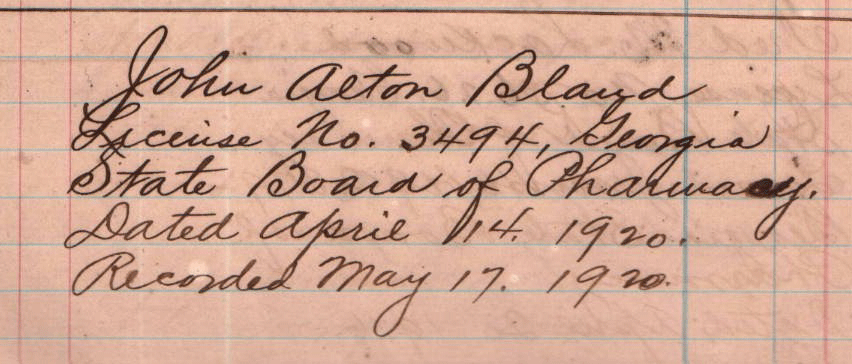 John Alton Bland
License No. 3494, Georgia
State Board of Pharmacy.
Dated April 14. 1920.
Recorded May 17. 1920.